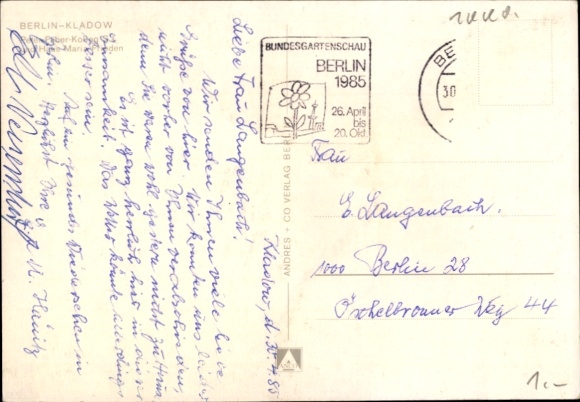 BERLIN-KLADOW
Kladow, d. 30.4.85
Liebe Frau Langenbach!
Wir senden Ihnen viele liebe
Grüße von hier. Wir konnten uns leider
nicht vorher von Ihnen verabschieden,
denn Sie waren wohl gestern nicht zu Hause.
Es ist ganz herrlich hier in unserer
Einsamkeit. Das Wetter könnte allerdings
besser sein.
Auf ein gesundes Wiedersehen in
Berlin. Herzlichst Ihre
M. Heinitz
ANDRES + CO VERLAG BERLIN
BUNDESGARTENSCHAU
BERLIN
1985
26. April
bis
20. Okt
BE
30
Frau
E. Langenbach.
1000 Berlin 28
Öschelbronner Weg 44
1,-